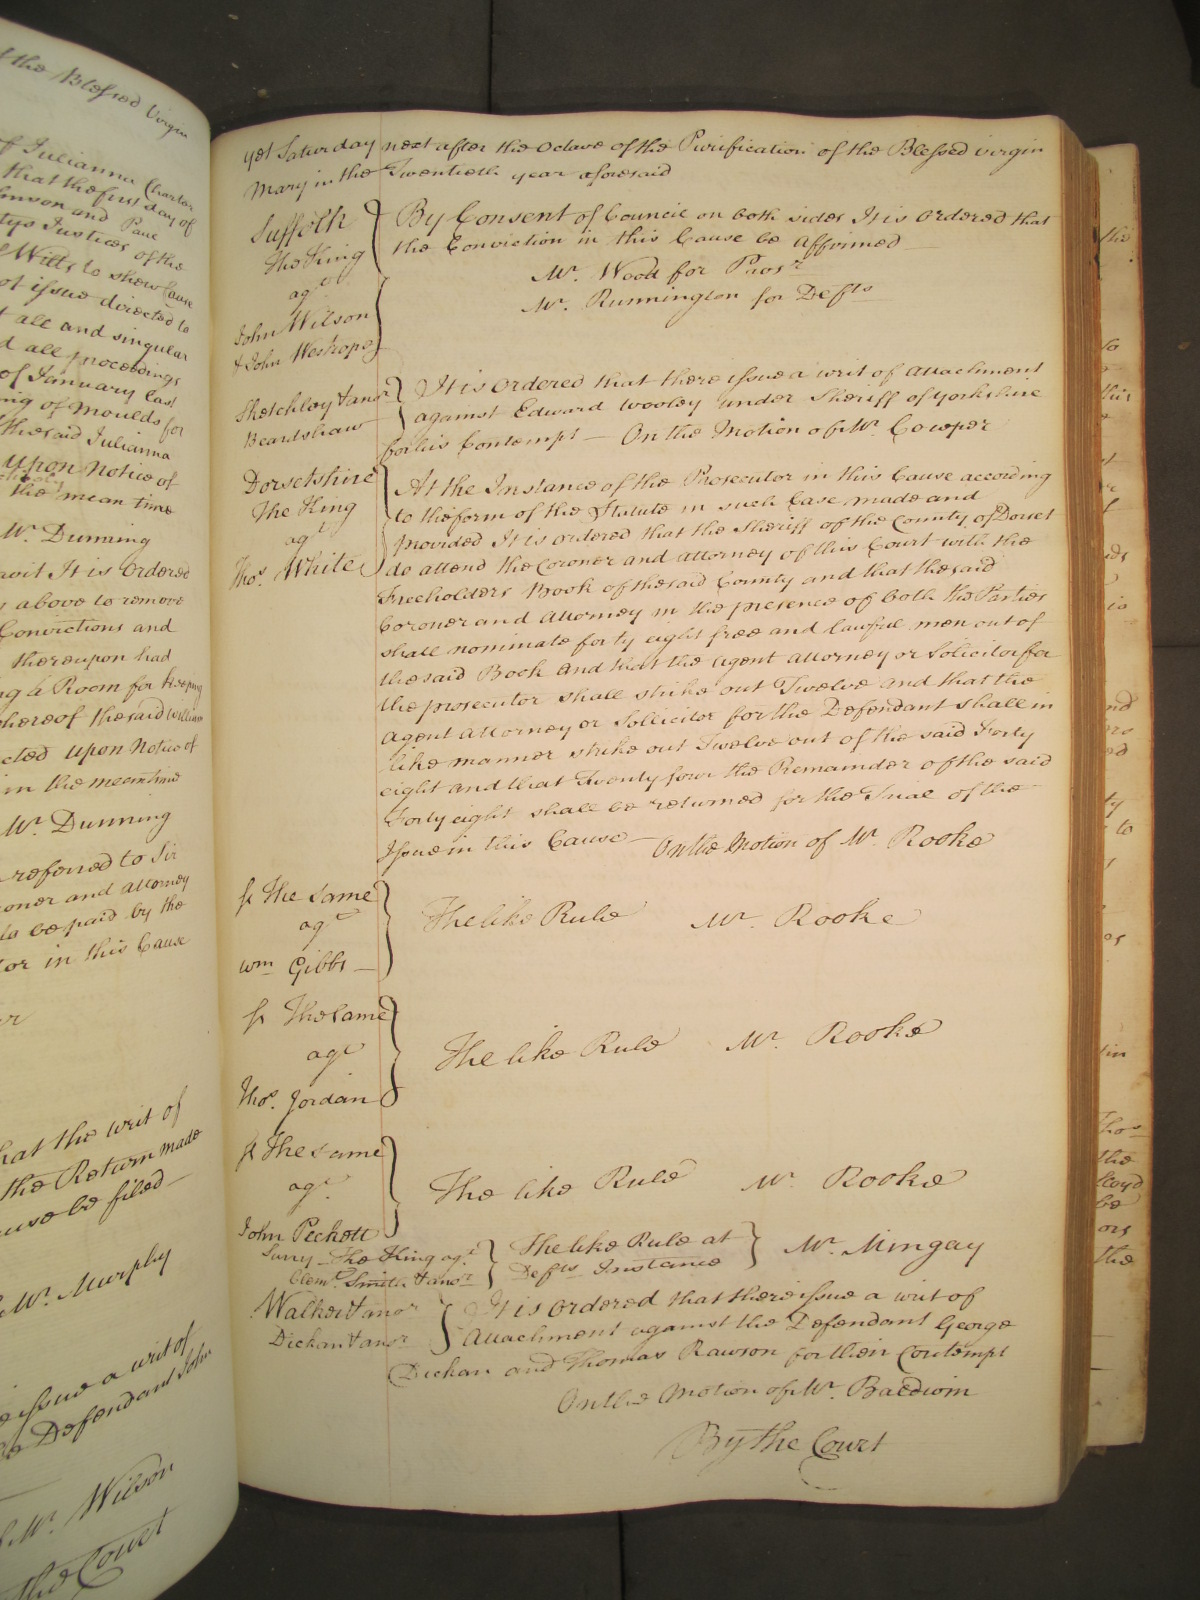 of the Blessed Virgin
of Julianna Charter
that the first day of
Johnson and Paul
Justices of the
Witts to show Cause
not issue directed to
all and singular
all proceedings
of January last
of Moulds for
the said Julianna
upon Notice of
the mean time
Mr. Dunning
It is Ordered
above to remove
Convictions and
thereupon had
a Room for keeping
whereof the said William
upon Notice of
in the mean time
Mr. Dunning
referred to Sir
Coroner and Attorney
to be paid by the
in this Cause
that the writ of
the Return made
Cause be filed
Mr. Murphy
issue a writ of
Defendant John
Mr. Wilson
the Court
yet Saturday next after the Octave of the Purification of the Blessed Virgin
Mary in the Twentieth year aforesaid
Suffolk
The King
agt
John Wilson
& John Weshope
By Consent of Council on both sides It is Ordered that
the Conviction in this Cause be Affirmed
Mr. Wood for Prosr
Mr. Runnington for Defts
Sketchley & anor
Beardshaw
It is Ordered that there issue a writ of Attachment
against Edward Wooley under Sheriff of Yorkshire
for his Contempt — On the Motion of Mr. Cowper
Dorsetshire
The King
agt
Thos. White
At the Instance of the Prosecutor in this Cause according
to the form of the Statute in such Case made and
provided It is ordered that the Sheriff of the County of Dorset
do attend the Coroner and Attorney of this Court with the
Freeholders Book of the said County and that the said
Coroner and Attorney in the presence of both the Parties
shall nominate forty eight free and lawful men out of
the said Book and that the Agent Attorney or Solicitor for
the prosecutor shall strike out Twelve and that the
Agent Attorney or Sollicitor for the Defendant shall in
like manner strike out Twelve out of the said Forty
eight and that Twenty four the Remainder of the said
Forty eight shall be returned for the Trial of the
Issue in this Cause — On the Motion of Mr. Rooke
fr The same
agt
Wm Gibbs —
The like Rule Mr. Rooke
fr The same
agt
Thos. Jordan
The like Rule Mr. Rooke
fr The same
agt
John Peckett
The like Rule Mr. Rooke
Surry — The King agt
Clemt. Smith & anor
The like Rule at
Defts Instance
Mr. Mingay
Walker & anor
Dickan & anor
It is Ordered that there issue a writ of
Attachment against the Defendant George
Dickan and Thomas Rawson for their Contempt
On the Motion of Mr. Baldwin
By the Court